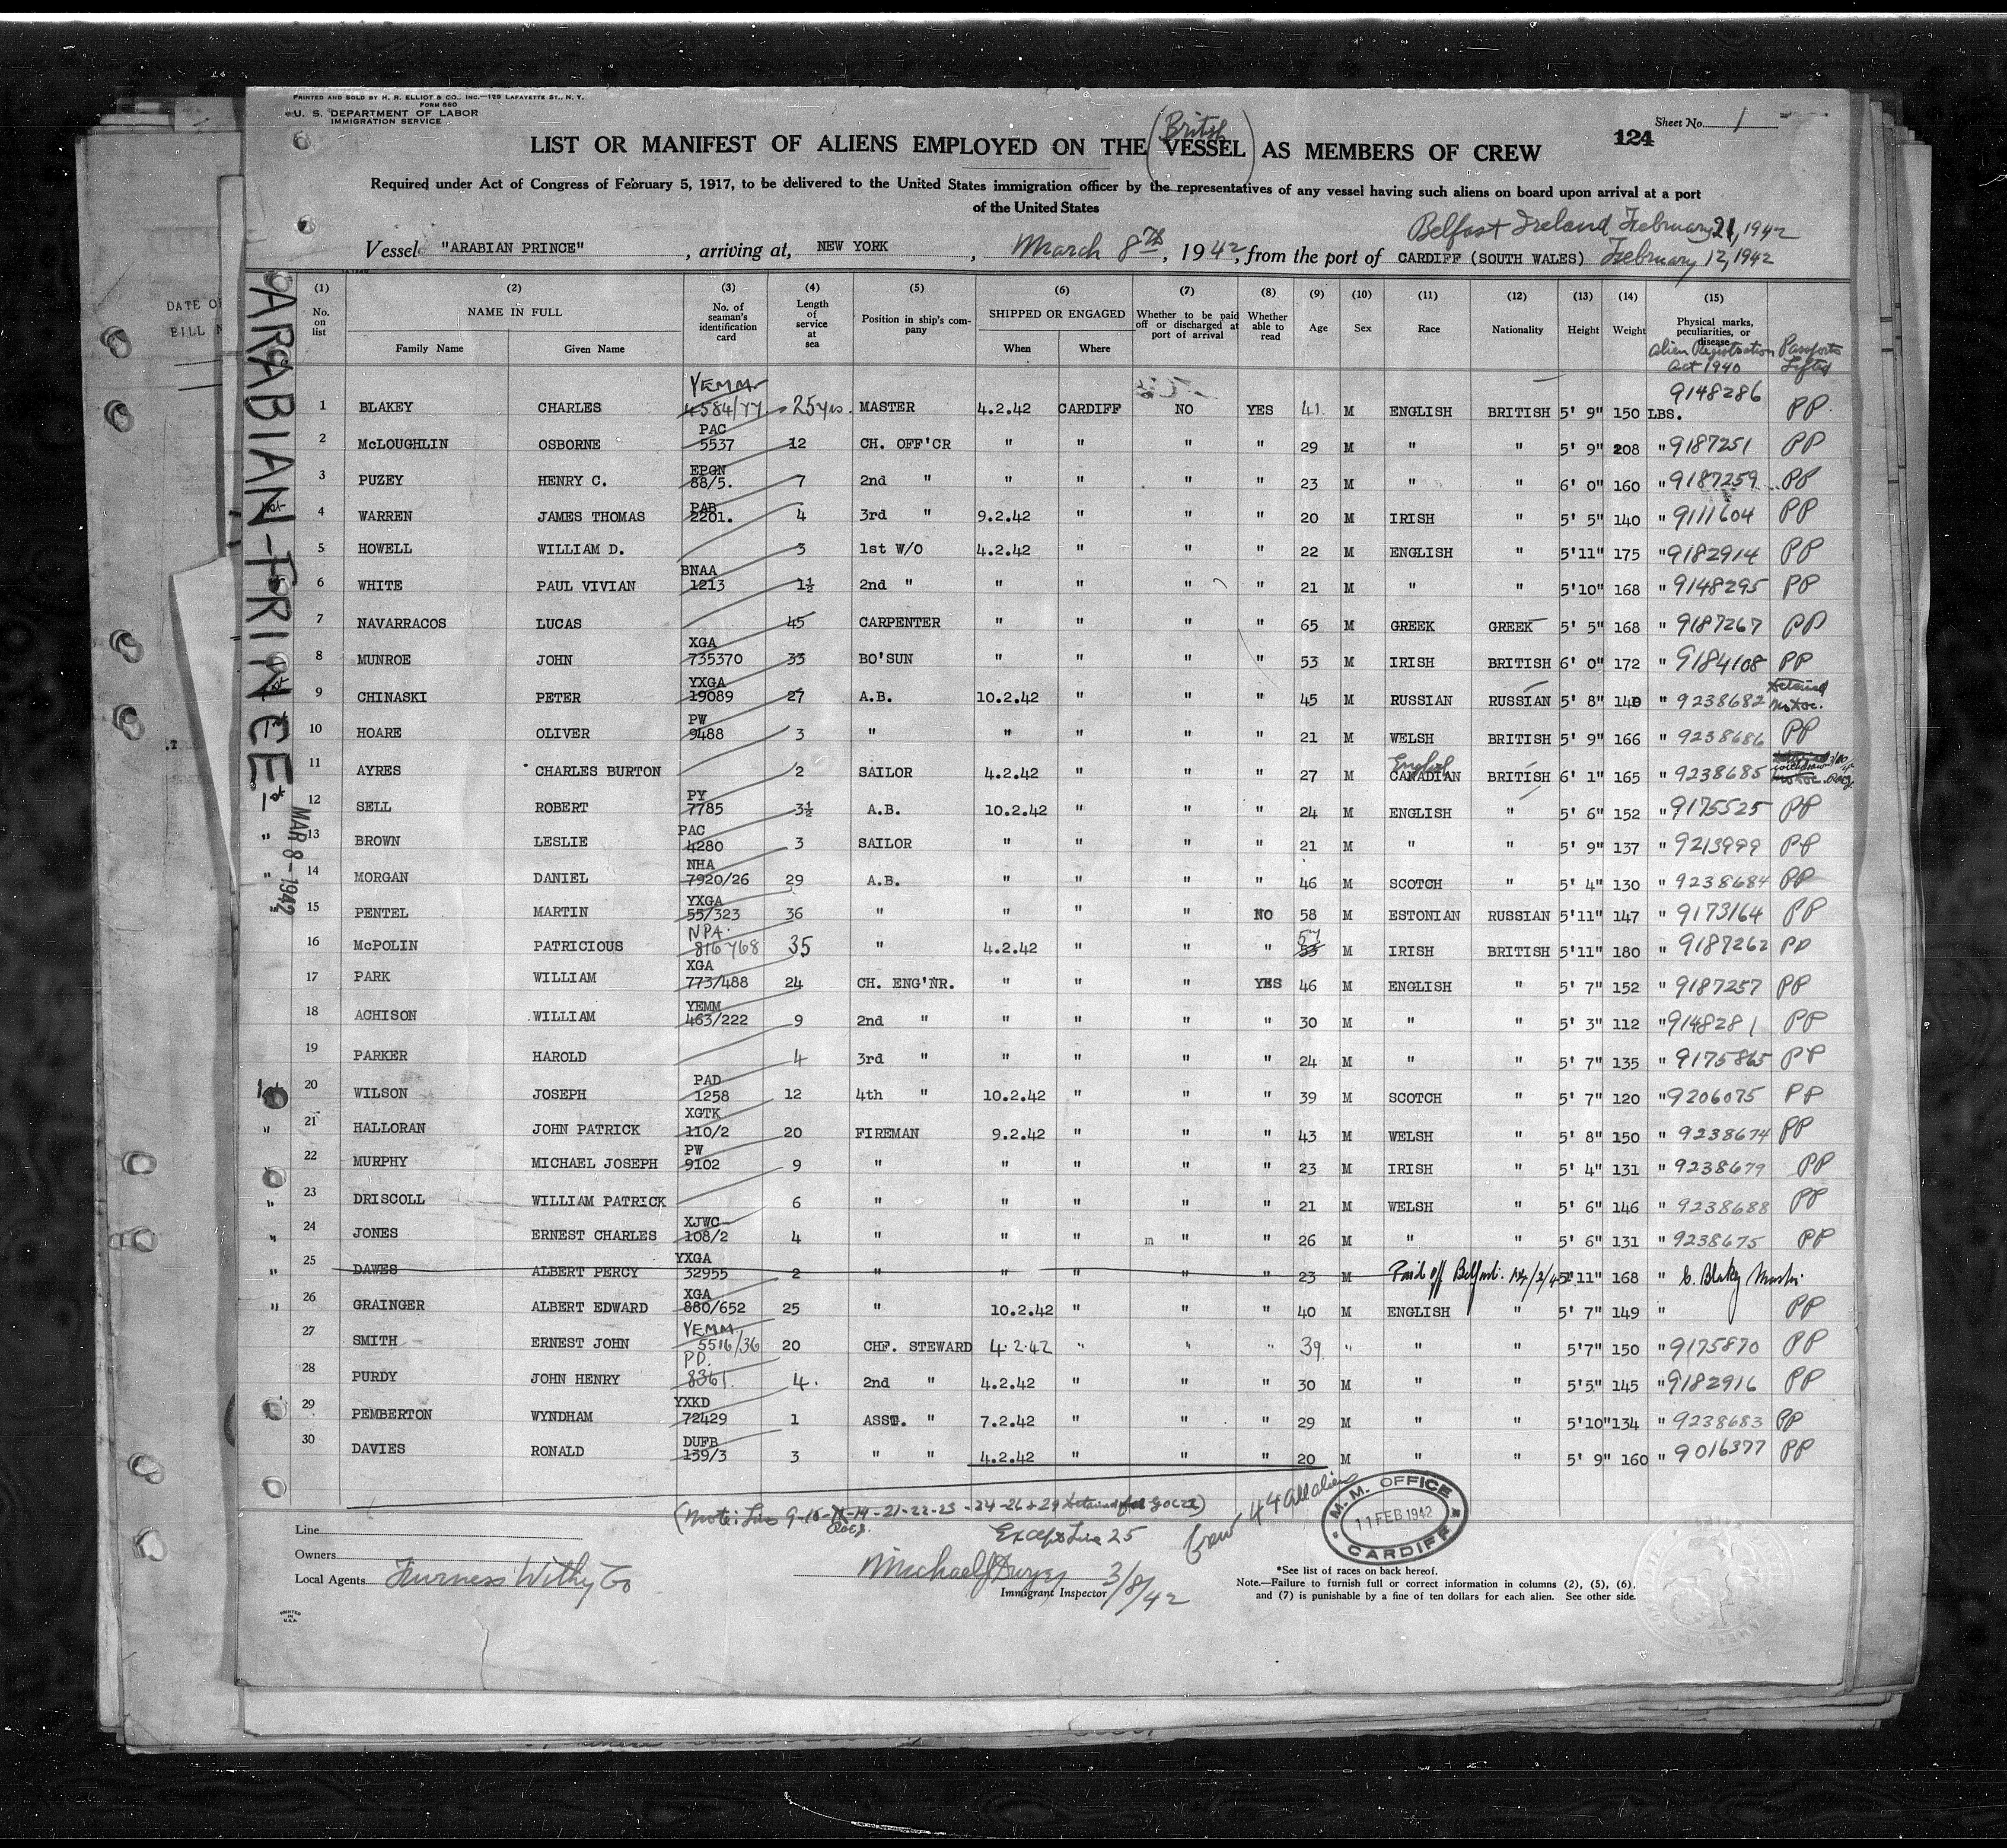 PRINTED AND SOLD BY H. R. ELLIOT & CO., INC.—129 LAFAYETTE ST., N. Y.
FORM 680
U. S. DEPARTMENT OF LABOR
IMMIGRATION SERVICE
Sheet No. 1
124
LIST OR MANIFEST OF ALIENS EMPLOYED ON THE (British VESSEL) AS MEMBERS OF CREW
Required under Act of Congress of February 5, 1917, to be delivered to the United States immigration officer by the representatives of any vessel having such aliens on board upon arrival at a port
of the United States
Belfast Ireland February 21, 1942
Vessel "ARABIAN PRINCE", arriving at, NEW YORK, March 8th, 1942, from the port of CARDIFF (SOUTH WALES) February 12, 1942
(1) (2) (3) (4) (5) (6) (7) (8) (9) (10) (11) (12) (13) (14) (15)
No. on list NAME IN FULL Family Name Given Name No. of seaman's identification card Length of service at sea Position in ship's company SHIPPED OR ENGAGED When Where Whether to be paid off or discharged at port of arrival Whether able to read Age Sex Race Nationality Height Weight Physical marks, peculiarities, or disease Alien Registration Act 1940 Passports Lifted
1 BLAKEY CHARLES YEMM 4584/77 25yrs. MASTER 4.2.42 CARDIFF NO YES 41 M ENGLISH BRITISH 5' 9" 150 LBS. 9148286 PP
2 McLOUGHLIN OSBORNE PAC 5537 12 CH. OFF'CR " " " " 29 M " " 5' 9" 208 " 9187251 PP
3 PUZEY HENRY C. EPGN 88/5. 7 2nd " " " " " 23 M " " 6' 0" 160 " 9187259 PP
4 WARREN JAMES THOMAS PAB 2201. 4 3rd " 9.2.42 " " " 20 M IRISH " 5' 5" 140 " 9111604 PP
5 HOWELL WILLIAM D. 3 1st W/O 4.2.42 " " " 22 M ENGLISH " 5'11" 175 " 9182914 PP
6 WHITE PAUL VIVIAN BNAA 1213 1½ 2nd " " " " " 21 M " " 5'10" 168 " 9148295 PP
7 NAVARRACOS LUCAS 45 CARPENTER " " " " 65 M GREEK GREEK 5' 5" 168 " 9187267 PP
8 MUNROE JOHN XGA 735370 33 BO'SUN " " " " 53 M IRISH BRITISH 6' 0" 172 " 9184108 PP
9 CHINASKI PETER YXGA 19089 27 A.B. 10.2.42 " " " 45 M RUSSIAN RUSSIAN 5' 8" 140 " 9238682 Detained
10 HOARE OLIVER PW 9488 3 " " " " " 21 M WELSH BRITISH 5' 9" 166 " 9238686 PP
11 AYRES CHARLES BURTON 2 SAILOR 4.2.42 " " " 27 M English CANADIAN BRITISH 6' 1" 165 " 9238685
12 SELL ROBERT PY 7785 3½ A.B. 10.2.42 " " " 24 M ENGLISH " 5' 6" 152 " 9175525 PP
13 BROWN LESLIE PAC 4280 3 SAILOR " " " " 21 M " " 5' 9" 137 " 9213999 PP
14 MORGAN DANIEL NHA 7920/26 29 A.B. " " " " 46 M SCOTCH " 5' 4" 130 " 9238684 PP
15 PENTEL MARTIN YXGA 55/323 36 " " " " NO 58 M ESTONIAN RUSSIAN 5'11" 147 " 9173164 PP
16 McPOLIN PATRICIOUS NPA. 816768 35 " 4.2.42 " " " 57 53 M IRISH BRITISH 5'11" 180 " 9187262 PP
17 PARK WILLIAM XGA 773/488 24 CH. ENG'NR. " " " YES 46 M ENGLISH " 5' 7" 152 " 9187257 PP
18 ACHISON WILLIAM YEMM 463/222 9 2nd " " " " " 30 M " " 5' 3" 112 " 9148281 PP
19 PARKER HAROLD 4 3rd " " " " " 24 M " " 5' 7" 135 " 9175865 PP
20 WILSON JOSEPH PAD 1258 12 4th " 10.2.42 " " " 39 M SCOTCH " 5' 7" 120 " 9206075 PP
21 HALLORAN JOHN PATRICK XGTK 110/2 20 FIREMAN 9.2.42 " " " 43 M WELSH " 5' 8" 150 " 9238674 PP
22 MURPHY MICHAEL JOSEPH PW 9102 9 " " " " " 23 M IRISH " 5' 4" 131 " 9238679 PP
23 DRISCOLL WILLIAM PATRICK 6 " " " " " 21 M WELSH " 5' 6" 146 " 9238688 PP
24 JONES ERNEST CHARLES XJWC 108/2 4 " " " m " " 26 M " " 5' 6" 131 " 9238675 PP
25 DAWES ALBERT PERCY YXGA 32955 2 " " " " " 23 M Paid off Belfast. 14/2/42 5'11" 168 " C. Blakey Master.
26 GRAINGER ALBERT EDWARD XGA 880/652 25 " 10.2.42 " " " 40 M ENGLISH " 5' 7" 149 " PP
27 SMITH ERNEST JOHN YEMM 5516/36 20 CHF. STEWARD 4.2.42 " " " 39 " " " 5'7" 150 " 9175870 PP
28 PURDY JOHN HENRY PD. 8361. 4. 2nd " 4.2.42 " " " 30 M " " 5'5" 145 " 9182916 PP
29 PEMBERTON WYNDHAM YXKD 72429 1 ASST. " 7.2.42 " " " 29 M " " 5'10" 134 " 9238683 PP
30 DAVIES RONALD DUFB 159/3 3 " " 4.2.42 " " " 20 M " " 5' 9" 160 " 9016377 PP
ARABIAN-PRINCE
MAR 8-1942
Except Line 25
Crew 44 all aliens
M. M. OFFICE
11 FEB 1942
CARDIFF
Line
Owners
Local Agents Furness Withy Co
Michael J Dwyer 3/8/42
Immigrant Inspector
*See list of races on back hereof.
Note.—Failure to furnish full or correct information in columns (2), (5), (6),
and (7) is punishable by a fine of ten dollars for each alien. See other side.
PRINTED IN U.S.A.
DATE OF
BILL